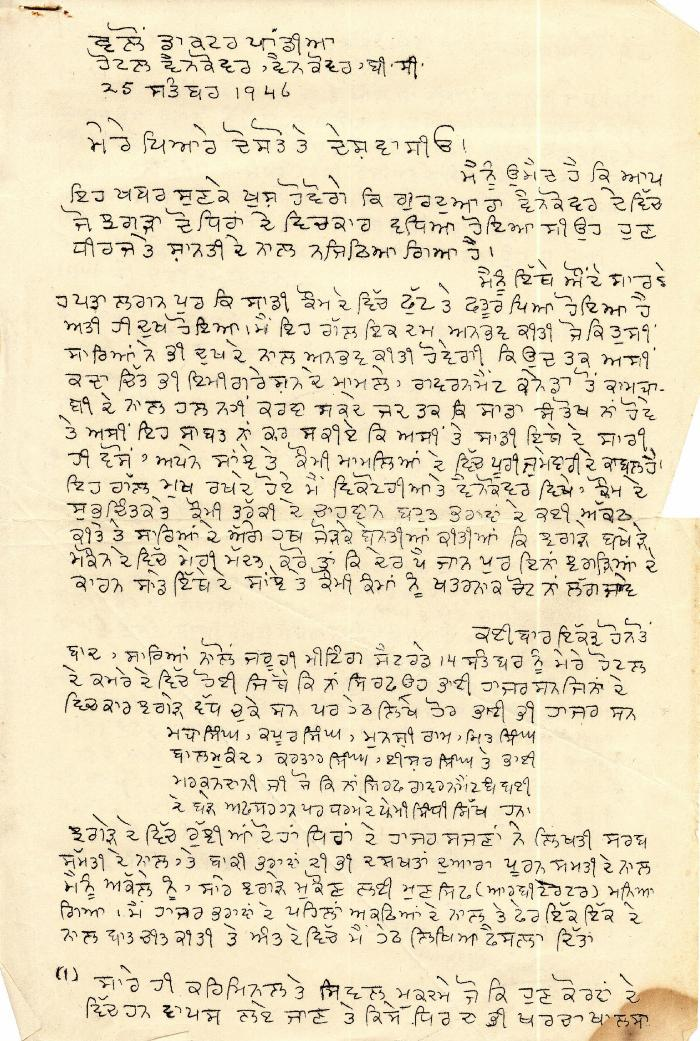 ਵਲੋਂ ਡਾਕਟਰ ਪਾਂਡੀਆ
ਹੋਟਲ ਵੈਨਕੋਵਰ, ਵੈਨਕੋਵਰ, ਬੀ.ਸੀ.
25 ਸਤੰਬਰ 1946
ਮੇਰੇ ਪਿਆਰੇ ਦੋਸਤੋ ਤੇ ਦੇਸ਼ਵਾਸੀਓ!
ਮੈਨੂੰ ਉਮੈਦ ਹੈ ਕਿ ਆਪ
ਇਹ ਖਬਰ ਸੁਣਕੇ ਖੁਸ਼ ਹੋਵੋਗੇ ਕਿ ਗੁਰਦੁਆਰਾ ਵੈਨਕੋਵਰ ਦੇ ਵਿੱਚ
ਜੋ ਝਗੜਾ ਦੋ ਧਿਰਾਂ ਦੇ ਵਿਚਕਾਰ ਵਧਿਆ ਹੋਇਆ ਸੀ ਉਹ ਹੁਣ
ਧੀਰਜ ਤੇ ਸ਼ਾਨਤੀ ਦੇ ਨਾਲ ਨਜਿਠਿਆ ਗਿਆ ਹੈ।
ਮੈਨੂੰ ਇੱਥੇ ਔਂਦੇ ਸਾਰ ਦੇ
ਹ ਪਤਾ ਲਗਾਨ ਪੁਰ ਕਿ ਸਾਡੀ ਕੌਮ ਦੇ ਵਿੱਚ ਫੁੱਟ ਤੇ ਫਤੂਰ ਪਿਆ ਹੋਇਆ ਹੈ
ਅਤੀ ਹੀ ਦੁਖ ਹੋਇਆ। ਮੈਂ ਇਹ ਗੱਲ ਇਕ ਦਮ ਅਨਭਵ ਕੀਤੀ ਜੋ ਕਿ ਤੁਸੀਂ
ਸਾਰਿਆਂ ਨੇ ਭੀ ਦੁਖ ਦੇ ਨਾਲ ਅਨਭਵ ਕੀਤੀ ਹੋਵੇਗੀ ਕਿ ਉਦ ਤਕ ਅਸੀਂ
ਕਦਾ ਚਿੱਤ ਭੀ ਇਮੀਗਰੇਸ਼ਨ ਦੇ ਮਾਮਲੇ, ਗਵਰਨਮੈਂਟ ਕਨੇਡਾ ਤੋਂ ਕਾਮਯਾ-
ਬੀ ਦੇ ਨਾਲ ਹਲ ਨਹੀਂ ਕਰਵਾ ਸਕਦੇ ਜਦ ਤਕ ਕਿ ਸਾਡਾ ਸੰਤੋਖ ਨਾਂ ਹੋਵੇ
ਤੇ ਅਸੀਂ ਇਹ ਸਾਬਤ ਨਾਂ ਕਰ ਸਕੀਏ ਕਿ ਅਸੀਂ ਤੇ ਸਾਡੀ ਇਥੇ ਦੇ ਸਾਰੀ
ਹੀ ਵੱਸੋਂ, ਅਪਨੇ ਸਾਂਝੇ ਤੇ ਕੌਮੀ ਮਾਮਲਿਆਂ ਦੇ ਵਿੱਚ ਪੂਰੀ ਜੁਮੇਵਾਰੀ ਦੇ ਕਾਬਲ ਹੈ।
ਇਹ ਗੱਲ ਮੁਖ ਰਖਦੇ ਹੋਏ ਮੈਂ ਵਿਕਟੋਰੀਆ ਤੇ ਵੈਨਕੋਵਰ ਵਿਖੇ, ਕੌਮ ਦੇ
ਸ਼ੁਭਚਿੰਤਕ ਤੇ ਕੌਮੀ ਤਰੱਕੀ ਦੇ ਚਾਹਵਾਨ ਬਹੁਤ ਭਰਾਵਾਂ ਦੇ ਕਈ ਅਕਠ
ਕੀਤੇ ਤੇ ਸਾਰਿਆਂ ਦੇ ਅੱਗੇ ਹਥ ਜੋੜਕੇ ਬੇਨਤੀਆਂ ਕੀਤੀਆਂ ਕਿ ਝਗੜੇ ਬਖੇੜੇ
ਮੁੱਕੌਨ ਦੇ ਵਿੱਚ ਮੇਰੀ ਮੱਦਤ ਕਰੋ ਤਾਂ ਕਿ ਦੇਰ ਪੈ ਜਾਨ ਪੁਰ ਇਨਾਂ ਝਗੜਿਆਂ ਦੇ
ਕਾਰਨ ਸਾਡੇ ਇੱਥੇ ਦੇ ਸਾਂਝੇ ਤੇ ਕੌਮੀ ਕੰਮਾਂ ਨੂੰ ਖਤਰਨਾਕ ਚੋਟ ਨਾਂ ਲੱਗ ਜਾਵੇ
ਕਈ ਬਾਰ ਇਕੱਤ੍ਰ ਹੋਨ ਤੋਂ
ਬਾਦ, ਸਾਰਿਆਂ ਨਾਲੋਂ ਜ਼ਰੂਰੀ ਮੀਟਿੰਗ ਸੈਟਰਡੇ 14 ਸਤੰਬਰ ਨੂੰ ਮੇਰੇ ਹੋਟਲ
ਦੇ ਕਮਰੇ ਦੇ ਵਿੱਚ ਹੋਈ ਜਿਥੇ ਕਿ ਨਾਂ ਸਿਰਫ ਉਹ ਭਾਈ ਹਾਜਰ ਸਨ ਜਿਨਾਂ ਦੇ
ਵਿਚਕਾਰ ਝਗੜੇ ਵੱਧ ਚੁਕੇ ਸਨ ਪਰ ਹੇਠ ਲਿਖੇ ਹੋਰ ਭਾਈ ਭੀ ਹਾਜਰ ਸਨ
ਮਯਾ ਸਿੰਘ, ਕਪੂਰ ਸਿੰਘ, ਮੁਨਸ਼ੀ ਰਾਮ, ਮਿਤ ਸਿੰਘ
ਬਾਲ ਮੁਕੰਦ, ਕਰਤਾਰ ਸਿੰਘ, ਈਸ਼ਰ ਸਿੰਘ ਤੇ ਭਾਈ
ਮਰਕਨਦਾਨੀ ਜੀ ਜੋ ਕਿ ਨਾਂ ਸਿਰਫ ਗਵਰਨਮੈਂਟ ਬੰਬਈ
ਦੇ ਬੜੇ ਅਫਸਰ ਹਨ ਪਰ ਧਰਮ ਦੇ ਪ੍ਰੇਮੀ ਸਿੰਧੀ ਸਿੱਖ ਹਨ।
ਝਗੜੇ ਦੇ ਵਿੱਚ ਰੁੱਝੀਆਂ ਦੋਹਾਂ ਧਿਰਾਂ ਦੇ ਹਾਜਰ ਸਜਣਾਂ ਨੇ ਲਿਖਤੀ ਸਰਬ
ਸੰਮਤੀ ਦੇ ਨਾਲ, ਤੇ ਬਾਕੀ ਭਰਾਵਾਂ ਦੀ ਭੀ ਦਸਖਤਾਂ ਦੁਆਰਾ ਪੂਰਨ ਸਮਤੀ ਦੇ ਨਾਲ
ਮੈਨੂੰ ਅਕੱਲੇ ਨੂੰ, ਸਾਰੇ ਝਗੜੇ ਮੁਕੌਣ ਲਈ ਮੁਣਸਿਫ (ਆਰਬੀਟਰੇਟਰ) ਮਨਿਆ
ਗਿਆ। ਮੈਂ ਹਾਜਰ ਭਰਾਵਾਂ ਦੇ ਪਹਿਲਾਂ ਅਕਠਿਆਂ ਦੇ ਨਾਲ ਤੇ ਫੇਰ ਇੱਕ ਇੱਕ ਦੇ
ਨਾਲ ਬਾਤ ਚੀਤ ਕੀਤੀ ਤੇ ਅੰਤ ਦੇ ਵਿੱਚ ਮੈਂ ਹੇਠ ਲਿਖਿਆ ਫੈਸਲਾ ਦਿੱਤਾ
(1) ਸਾਰੇ ਹੀ ਕਰਿਮਿਨਲ ਤੇ ਸਿਵਲ ਮੁਕਦਮੇ ਜੋ ਕਿ ਹੁਣ ਕੋਰਟਾਂ ਦੇ
ਵਿੱਚ ਹਨ ਵਾਪਸ ਲਏ ਜਾਣ ਤੇ ਕਿਸੇ ਧਿਰ ਦਾ ਭੀ ਖਰਚਾ ਖਾਲਸਾ